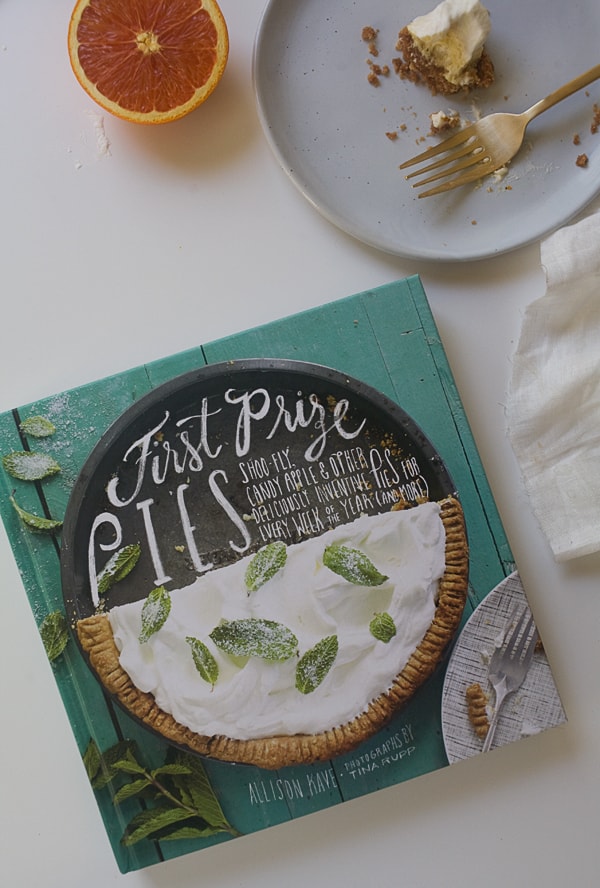 First Prize
PIES
SHOO-FLY,
CANDY APPLE & OTHER
DELICIOUSLY INVENTIVE PIES FOR
EVERY WEEK OF THE YEAR (AND MORE)
ALLISON KAVE · PHOTOGRAPHS BY
TINA RUPP